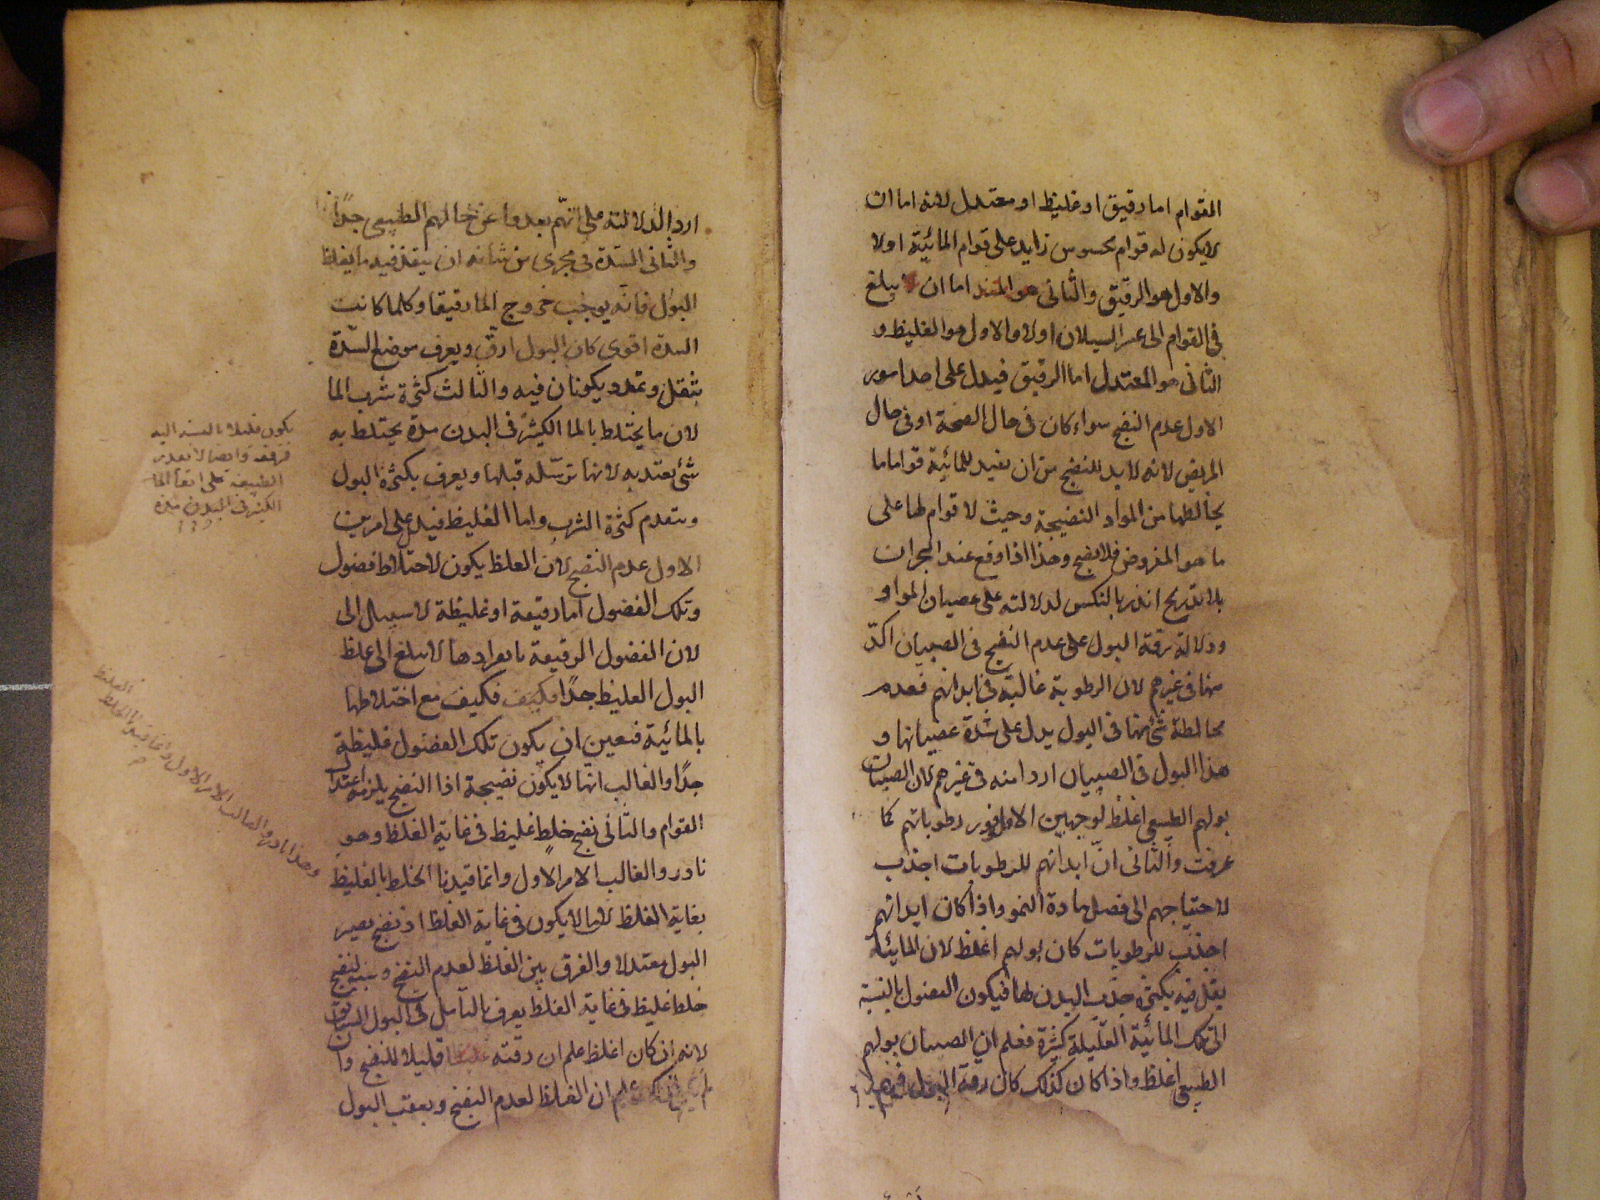 القوام اما رقيق او غليظ او معتدل لانه اما ان
لا يكون له قوام محسوس زايد على قوام المائية اولا
والاول هو الرقيق والثانى اما ان يبلغ
فى القوام الى عسر السيلان اولا والاول هو الغليظ و
الثانى هو المعتدل اما الرقيق فيدل على احد امور
الاول عدم النضج سواء كان فى حال الصحة او فى حال
المرض لانه لا بد للنضج من ان يفيد للمائية قواما ما
يخالطها من المواد النضيجة وحيث لا قوام لها على
ما هو المفروض فلا نضج وهذا اذا وقع عند البحران
بلا تدريج انذر بالنكس لدلالته على عصيان المواد
ودلالة رقة البول على عدم النضج فى الصبيان اكد
منها فى غيرهم لان الرطوبة غالبة فى ابدانهم فعدم
مخالطة شئ منها فى البول يدل على شدة عصيانها و
هذا البول فى الصبيان اردا منه فى غيرهم لان الصبيان
بولهم الطبيعى اغلظ لوجهين الاول وفور رطوباتهم كما
عرفت والثانى انّ ابدانهم للرطوبات اجذب
لاحتياجهم الى فضل مادة النمو واذا كان ابدانهم
اجذب للرطوبات كان بولهم اغلظ لان المائية
يقل فيه بكثرة جذب البدن لها فيكون الفضول بالنسبة
الى تلك المائية القليلة كثيرة فعلم ان الصبيان بولهم
الطبيعى اغلظ واذا كان كذلك كان رقة البول فيهم
اردا لدلالته على انهم بعدوا عن حالهم الطبيعى جدًا
والثانى السدة فى مجرى من شانه ان ينفذ فيه ما يغلظ
البول فانه يوجب خروج الما رقيقا وكلما كانت
السدة اقوى كان البول ارق ويعرف موضع السدة
بثقل وتمدد يكونان فيه والثالث كثرة شرب الما
لان ما يختلط بالما الكثير فى البدن مدة يختلط به
شئ يعتد به لانها ترسله قبلها ويعرف بكثرة البول
وبتقدم كثرة الشرب واما الغليظ فيدل على امرين
الاول عدم النضج لان الغلظ يكون لاختلاط فضول
وتلك الفضول اما رقيقة او غليظة لا سبيل الى
لان الفضول الرقيقة بانفرادها لا يبلغ الى غلظ
البول الغليظ جدًا فكيف مع اختلاطها
بالمائية فتعين ان يكون تلك الفضول غليظة
جدًا والغالب انها لا يكون نضيجة اذا النضج يلزمه اعتدال
القوام والثانى نضج خلط غليظ فى غاية الغلظ وهو
نادر والغالب الامر الاول وانما قيدنا الخلط بالغليظ
بغاية الغلظ لان ما لا يكون فى غاية الغلظ اذ نضج يصير
البول معتدلا والفرق بين الغلظ لعدم النضج وبين نضج
خلط غليظ فى غاية الغلظ يعرف بالتامل فى البول السابق
لانه ان كان اغلظ علم ان رقته قليلا للنضج وان
لم يكن كذلك علم ان الغلظ لعدم النضج ويعقب البول
يكون قليلا بالنسبة اليه
وايضا لا يقدر
الطبيعة على ابقا الما
الكثير فى البدن مدة
وهذا نادر والغالب الامر الاول وانما قيدنا الخلط